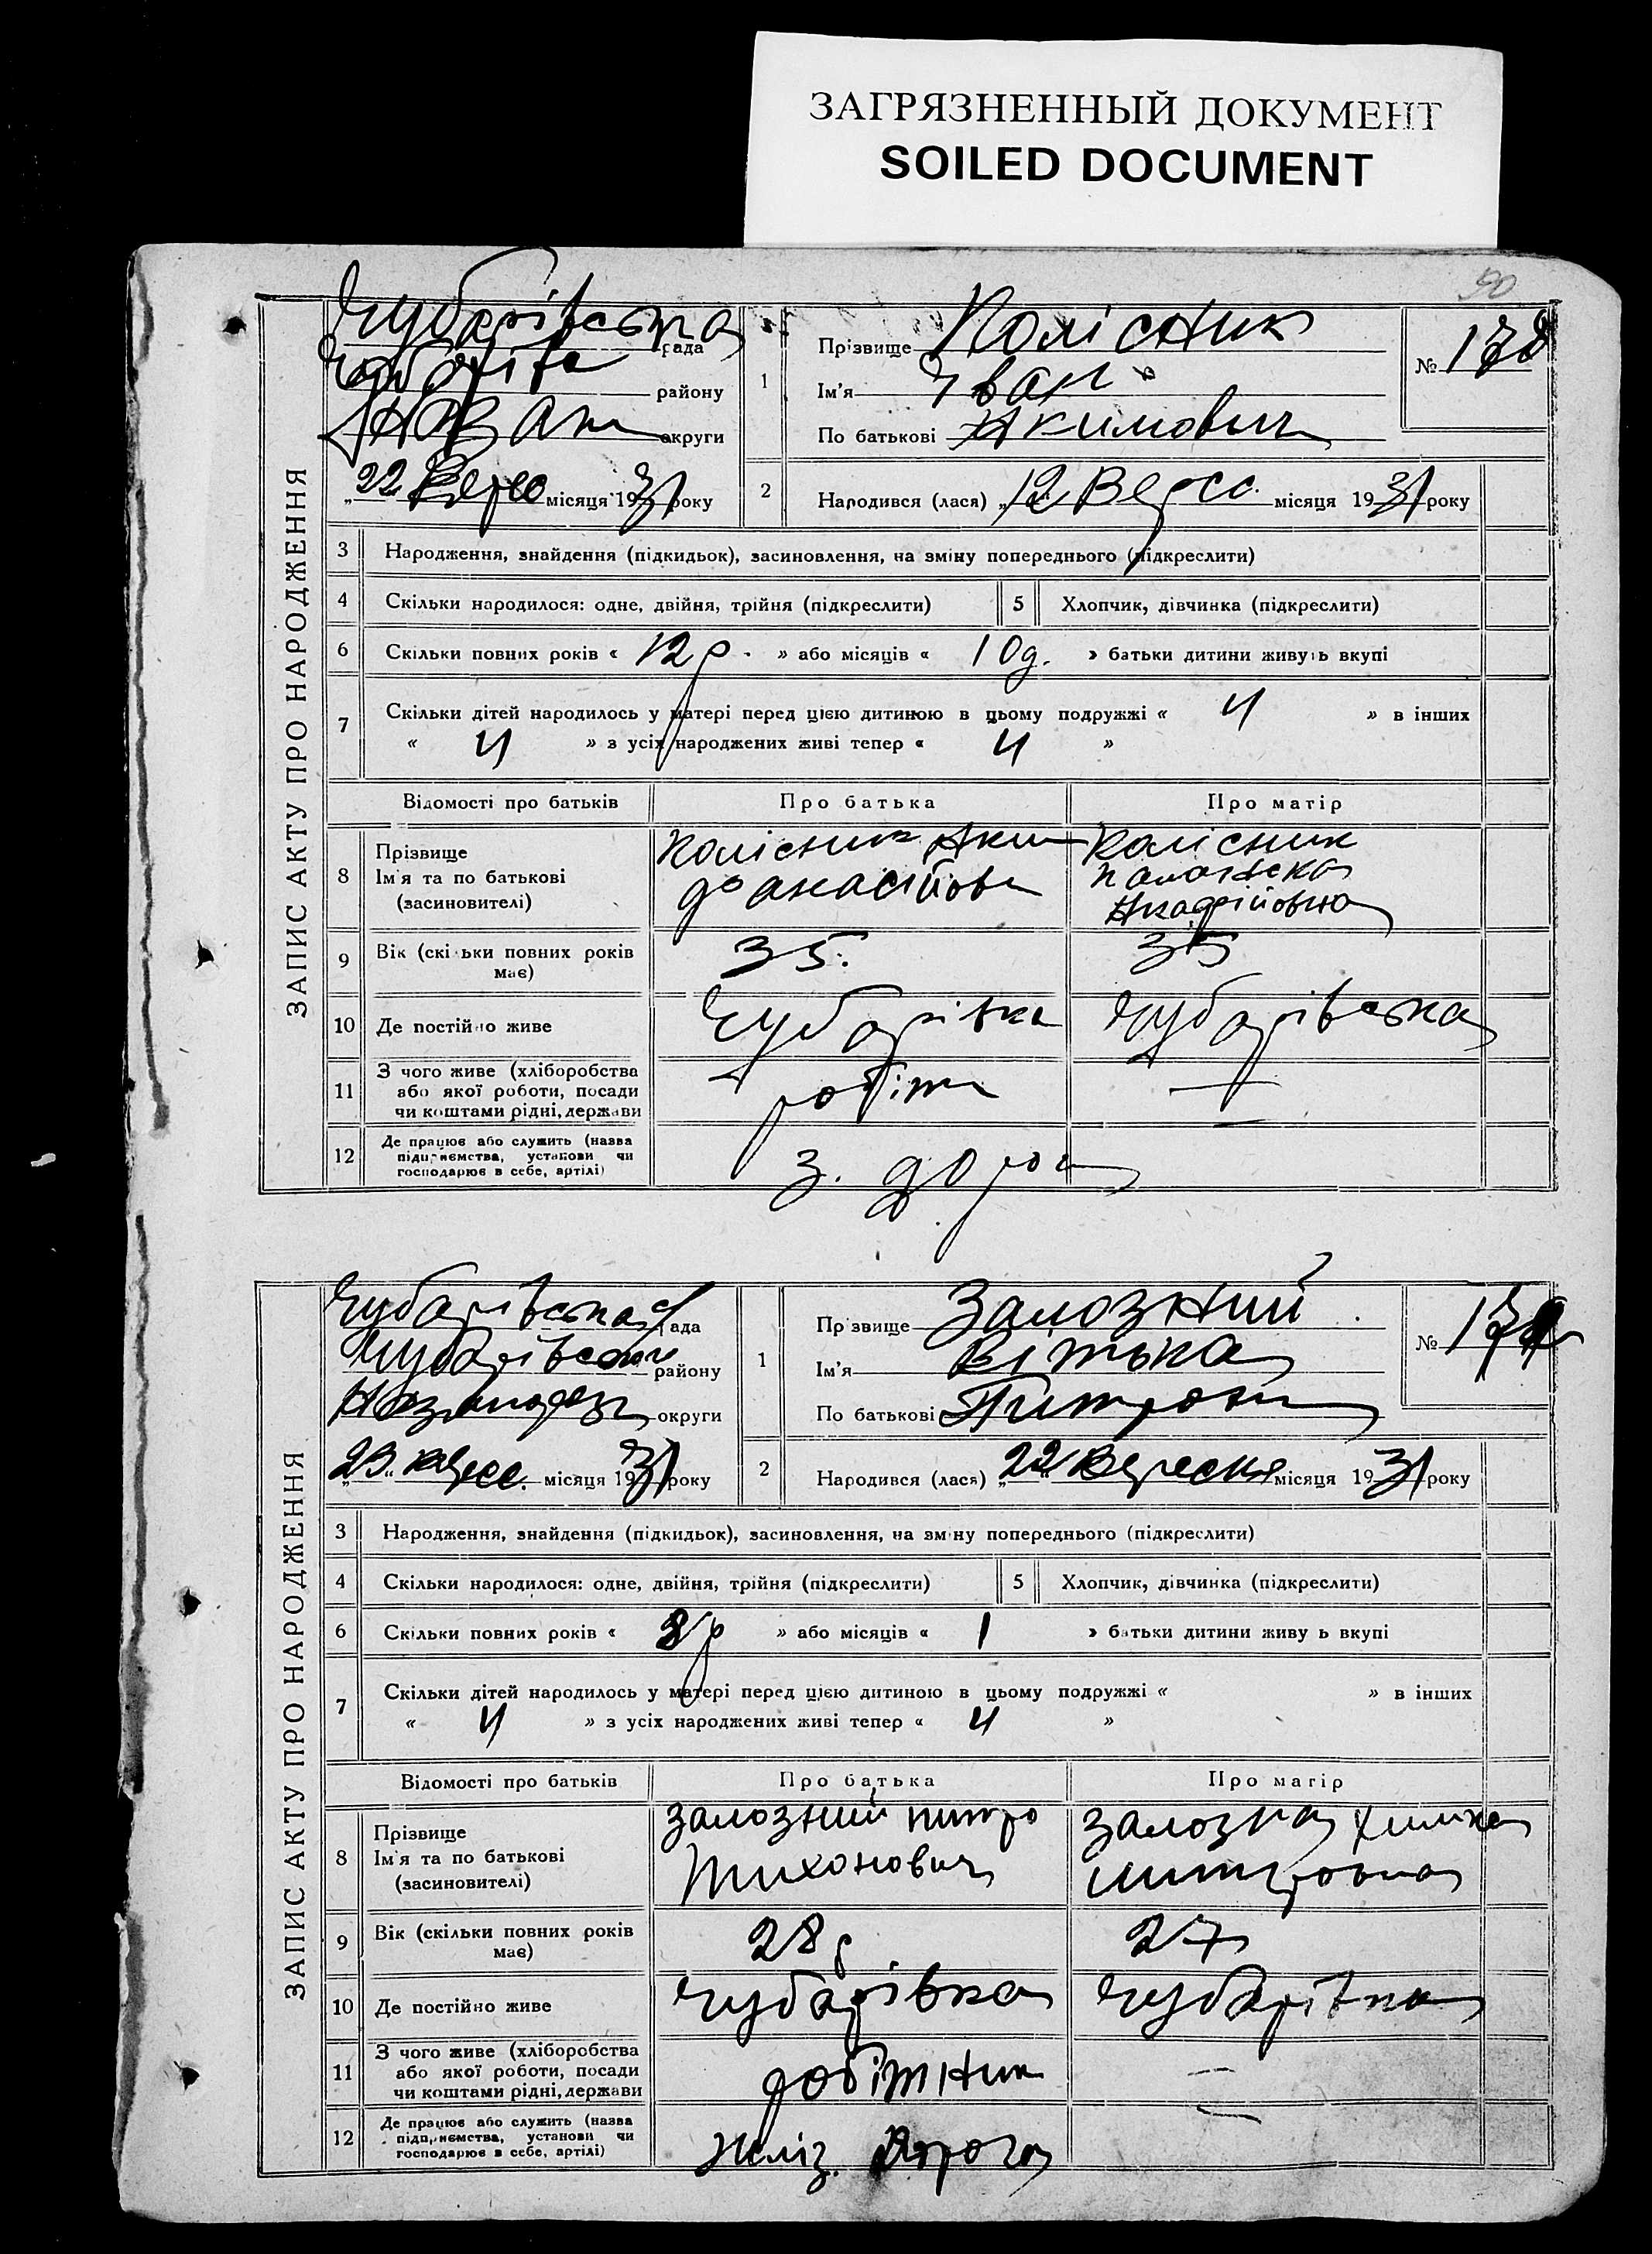 ЗАГРЯЗНЕННЫЙ ДОКУМЕНТ
SOILED DOCUMENT
90
ЗАПИС АКТУ ПРО НАРОДЖЕННЯ
Чубарівська рада
району
округи
„22 Верес місяця 1931 року
1
Прізвище Колісник
Ім'я Іван
По батькові Акимович
№ 178
2
Народився (лася) „12 Верес. місяця 1931 року
3 Народження, знайдення (підкидьок), засиновлення, на зміну попереднього (підкреслити)
4 Скільки народилося: одне, двійня, трійня (підкреслити) 5 Хлопчик, дівчинка (підкреслити)
6 Скільки повних років « 12 р. » або місяців « 10 » батьки дитини живуть вкупі
7 Скільки дітей народилось у матері перед цією дитиною в цьому подружжі « 4 » в інших
« 4 » з усіх народжених живі тепер « 4 »
Відомості про батьків Про батька Про матір
8 Прізвище Ім'я та по батькові (засиновителі)
Колісник Аким
Колісник
9 Вік (скільки повних років має) 35. 35
10 Де постійно живе Чубарівка Чубарівська
11 З чого живе (хліборобства або якої роботи, посади чи коштами рідні, держави робітн —
12 Де працює або служить (назва підприємства, установи чи господарює в себе, артілі) з. дорог
ЗАПИС АКТУ ПРО НАРОДЖЕННЯ
Чубарівська рада
Чубарівськ району
округи
„23„ Верес. місяця 1931 року
1
Прізвище Залозний
Ім'я Вітька
По батькові
№
2
Народився (лася) „22„ Вересня місяця 1931 року
3 Народження, знайдення (підкидьок), засиновлення, на зміну попереднього (підкреслити)
4 Скільки народилося: одне, двійня, трійня (підкреслити) 5 Хлопчик, дівчинка (підкреслити)
6 Скільки повних років « 8 р » або місяців « 1 » батьки дитини живуть вкупі
7 Скільки дітей народилось у матері перед цією дитиною в цьому подружжі « » в інших
« 4 » з усіх народжених живі тепер « 4 »
Відомості про батьків Про батька Про матір
8 Прізвище Ім'я та по батькові (засиновителі)
Залозний Питро
Тихонович
Залозна
9 Вік (скільки повних років має) 28 р 27
10 Де постійно живе Чубарівка Чубарівка
11 З чого живе (хліборобства або якої роботи, посади чи коштами рідні, держави робітник —
12 Де працює або служить (назва підприємства, установи чи господарює в себе, артілі) Жиліз. Дорога